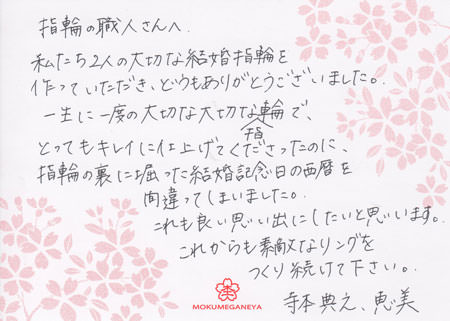 指輪の職人さんへ
私たち2人の大切な結婚指輪を
作っていただき、どうもありがとうございました。
一生に一度の大切な大切な指輪で、
とってもキレイに仕上げてくださったのに、
指輪の裏に堀った結婚記念日の西暦を
間違ってしまいました。
これも良い思い出にしたいと思います。
これからも素敵なリングを
つくり続けて下さい。
寺本典之、恵美
MOKUMEGANEYA